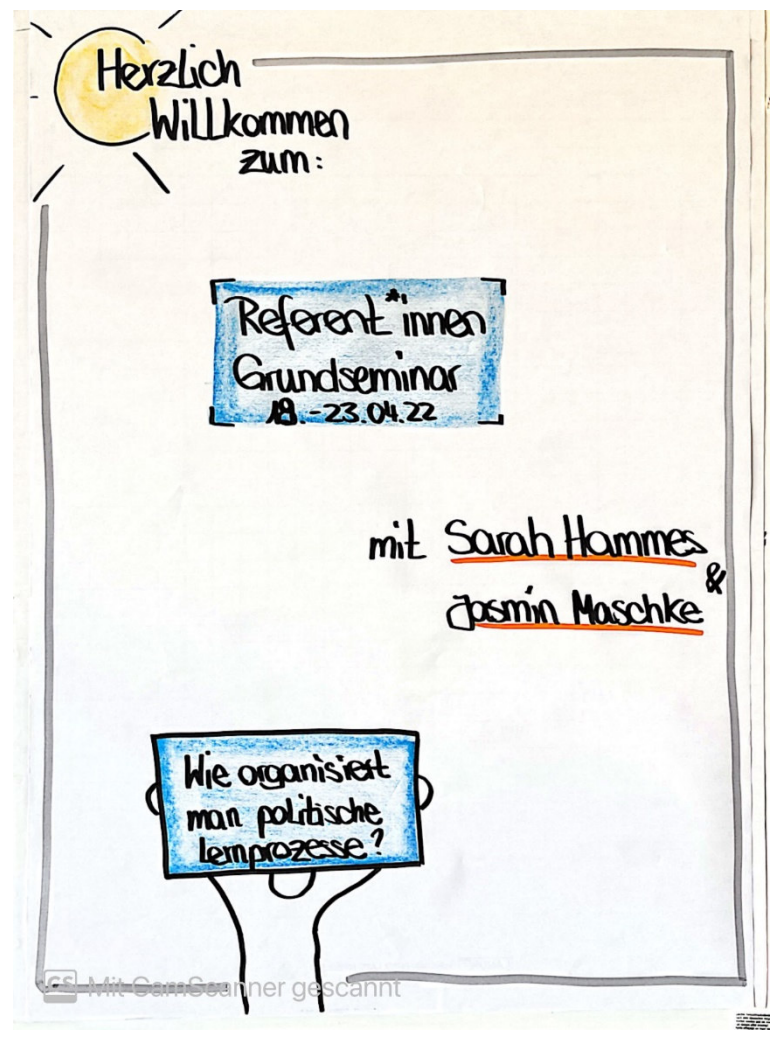 Herzlich
Willkommen
zum:
Referent*innen
Grundseminar
18.-23.04.22
mit Sarah Hammes
&
Jasmin Maschke
Wie organisiert
man politische
Lernprozesse?
CS Mit CamScanner gescannt